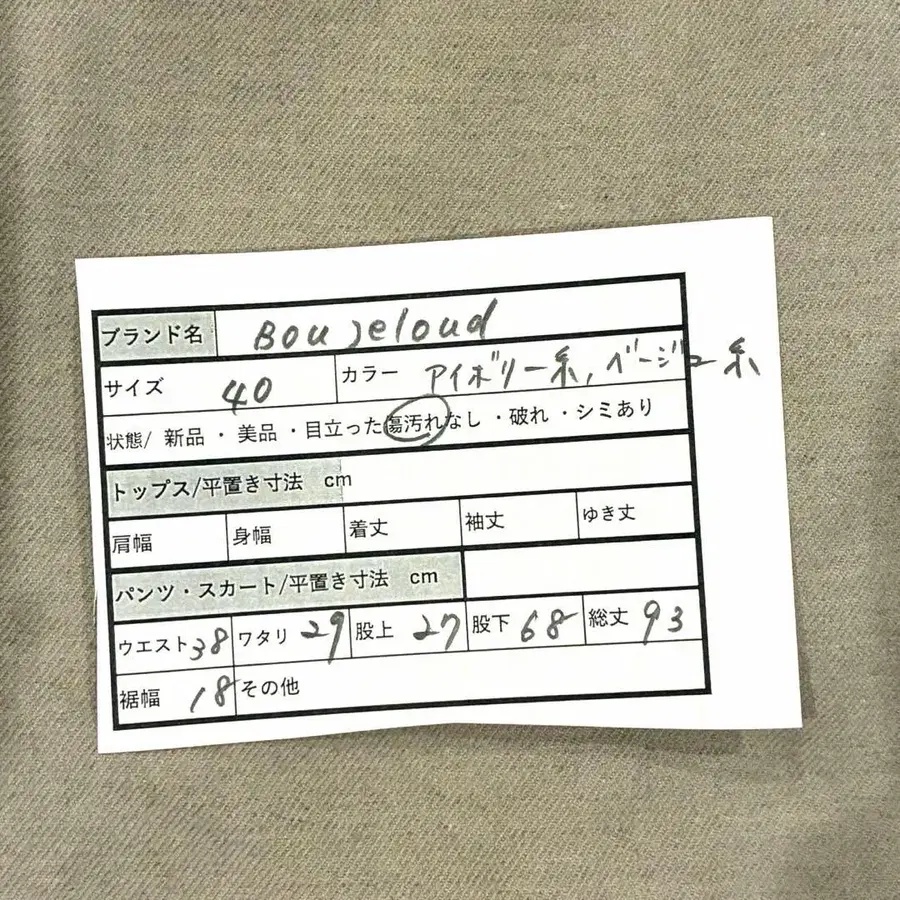 ブランド名 BouJeloud
サイズ 40 カラー アイボリー系, ベージュ系
状態/ 新品 ・ 美品 ・目立った傷汚れなし ・破れ ・シミあり
トップス/平置き寸法 cm
肩幅 身幅 着丈 袖丈 ゆき丈
パンツ・スカート/平置き寸法 cm
ウエスト 38 ワタリ 29 股上 27 股下 68 総丈 93
裾幅 18 その他